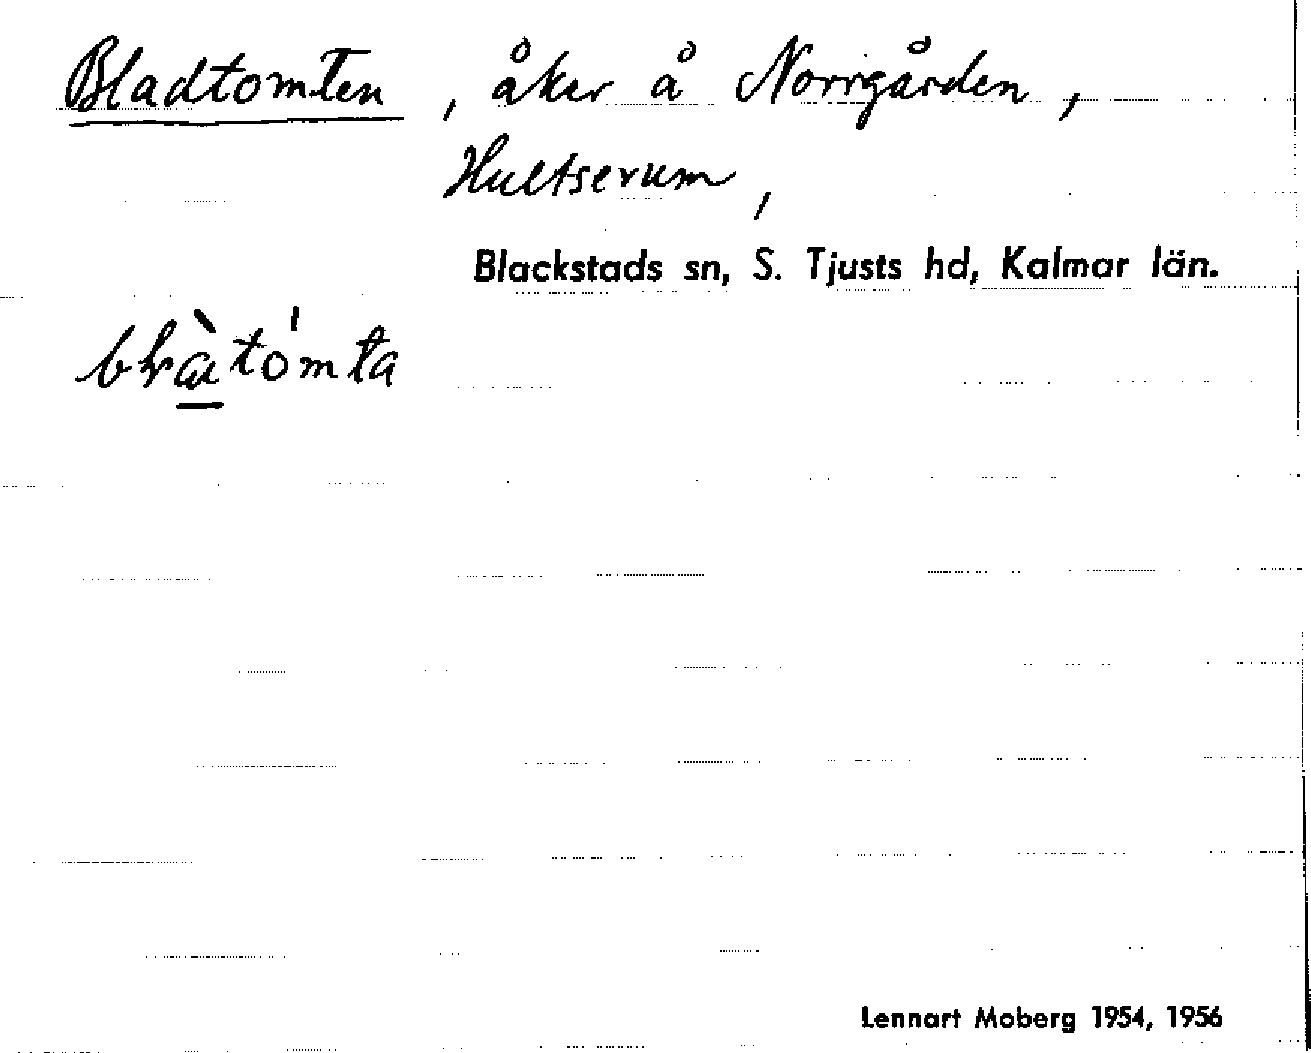 Bladtomten, åker å Norrgården,
Hultserum,
Blackstads sn, S. Tjusts hd, Kalmar län.
blàtómta
Lennart Moberg 1954, 1956